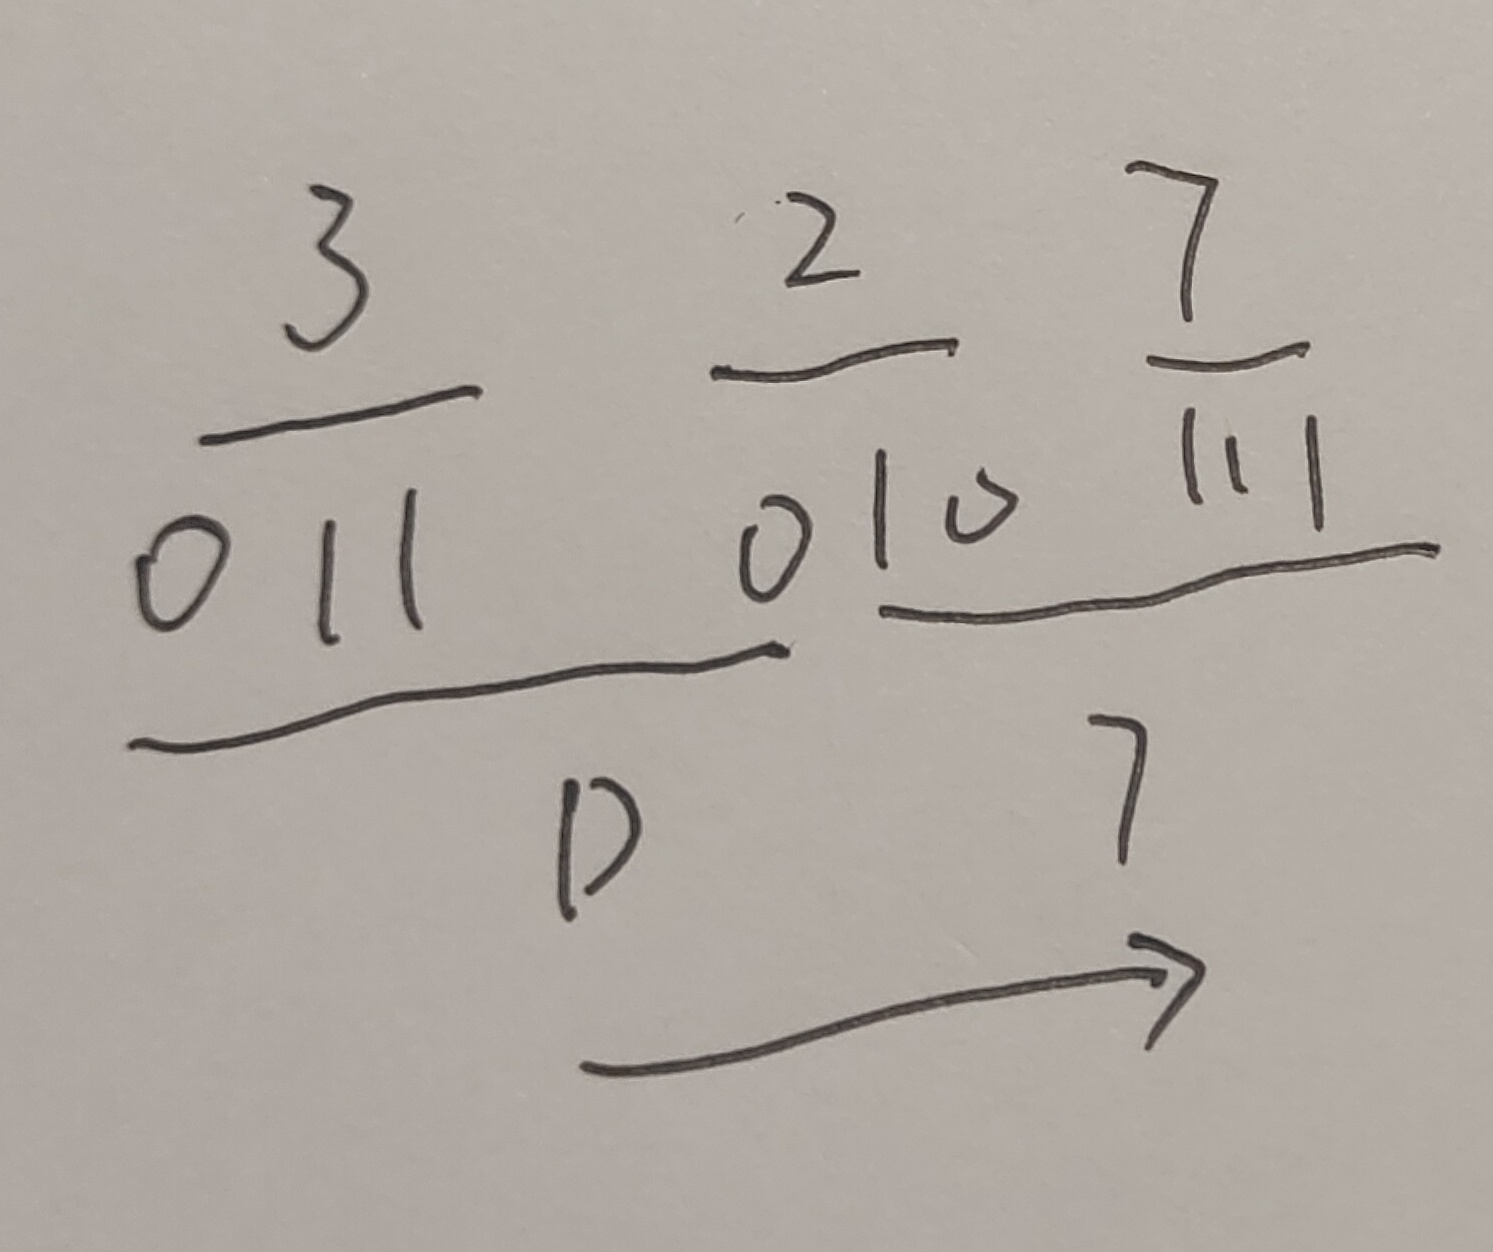 3 2 7
011 010 111
D 7